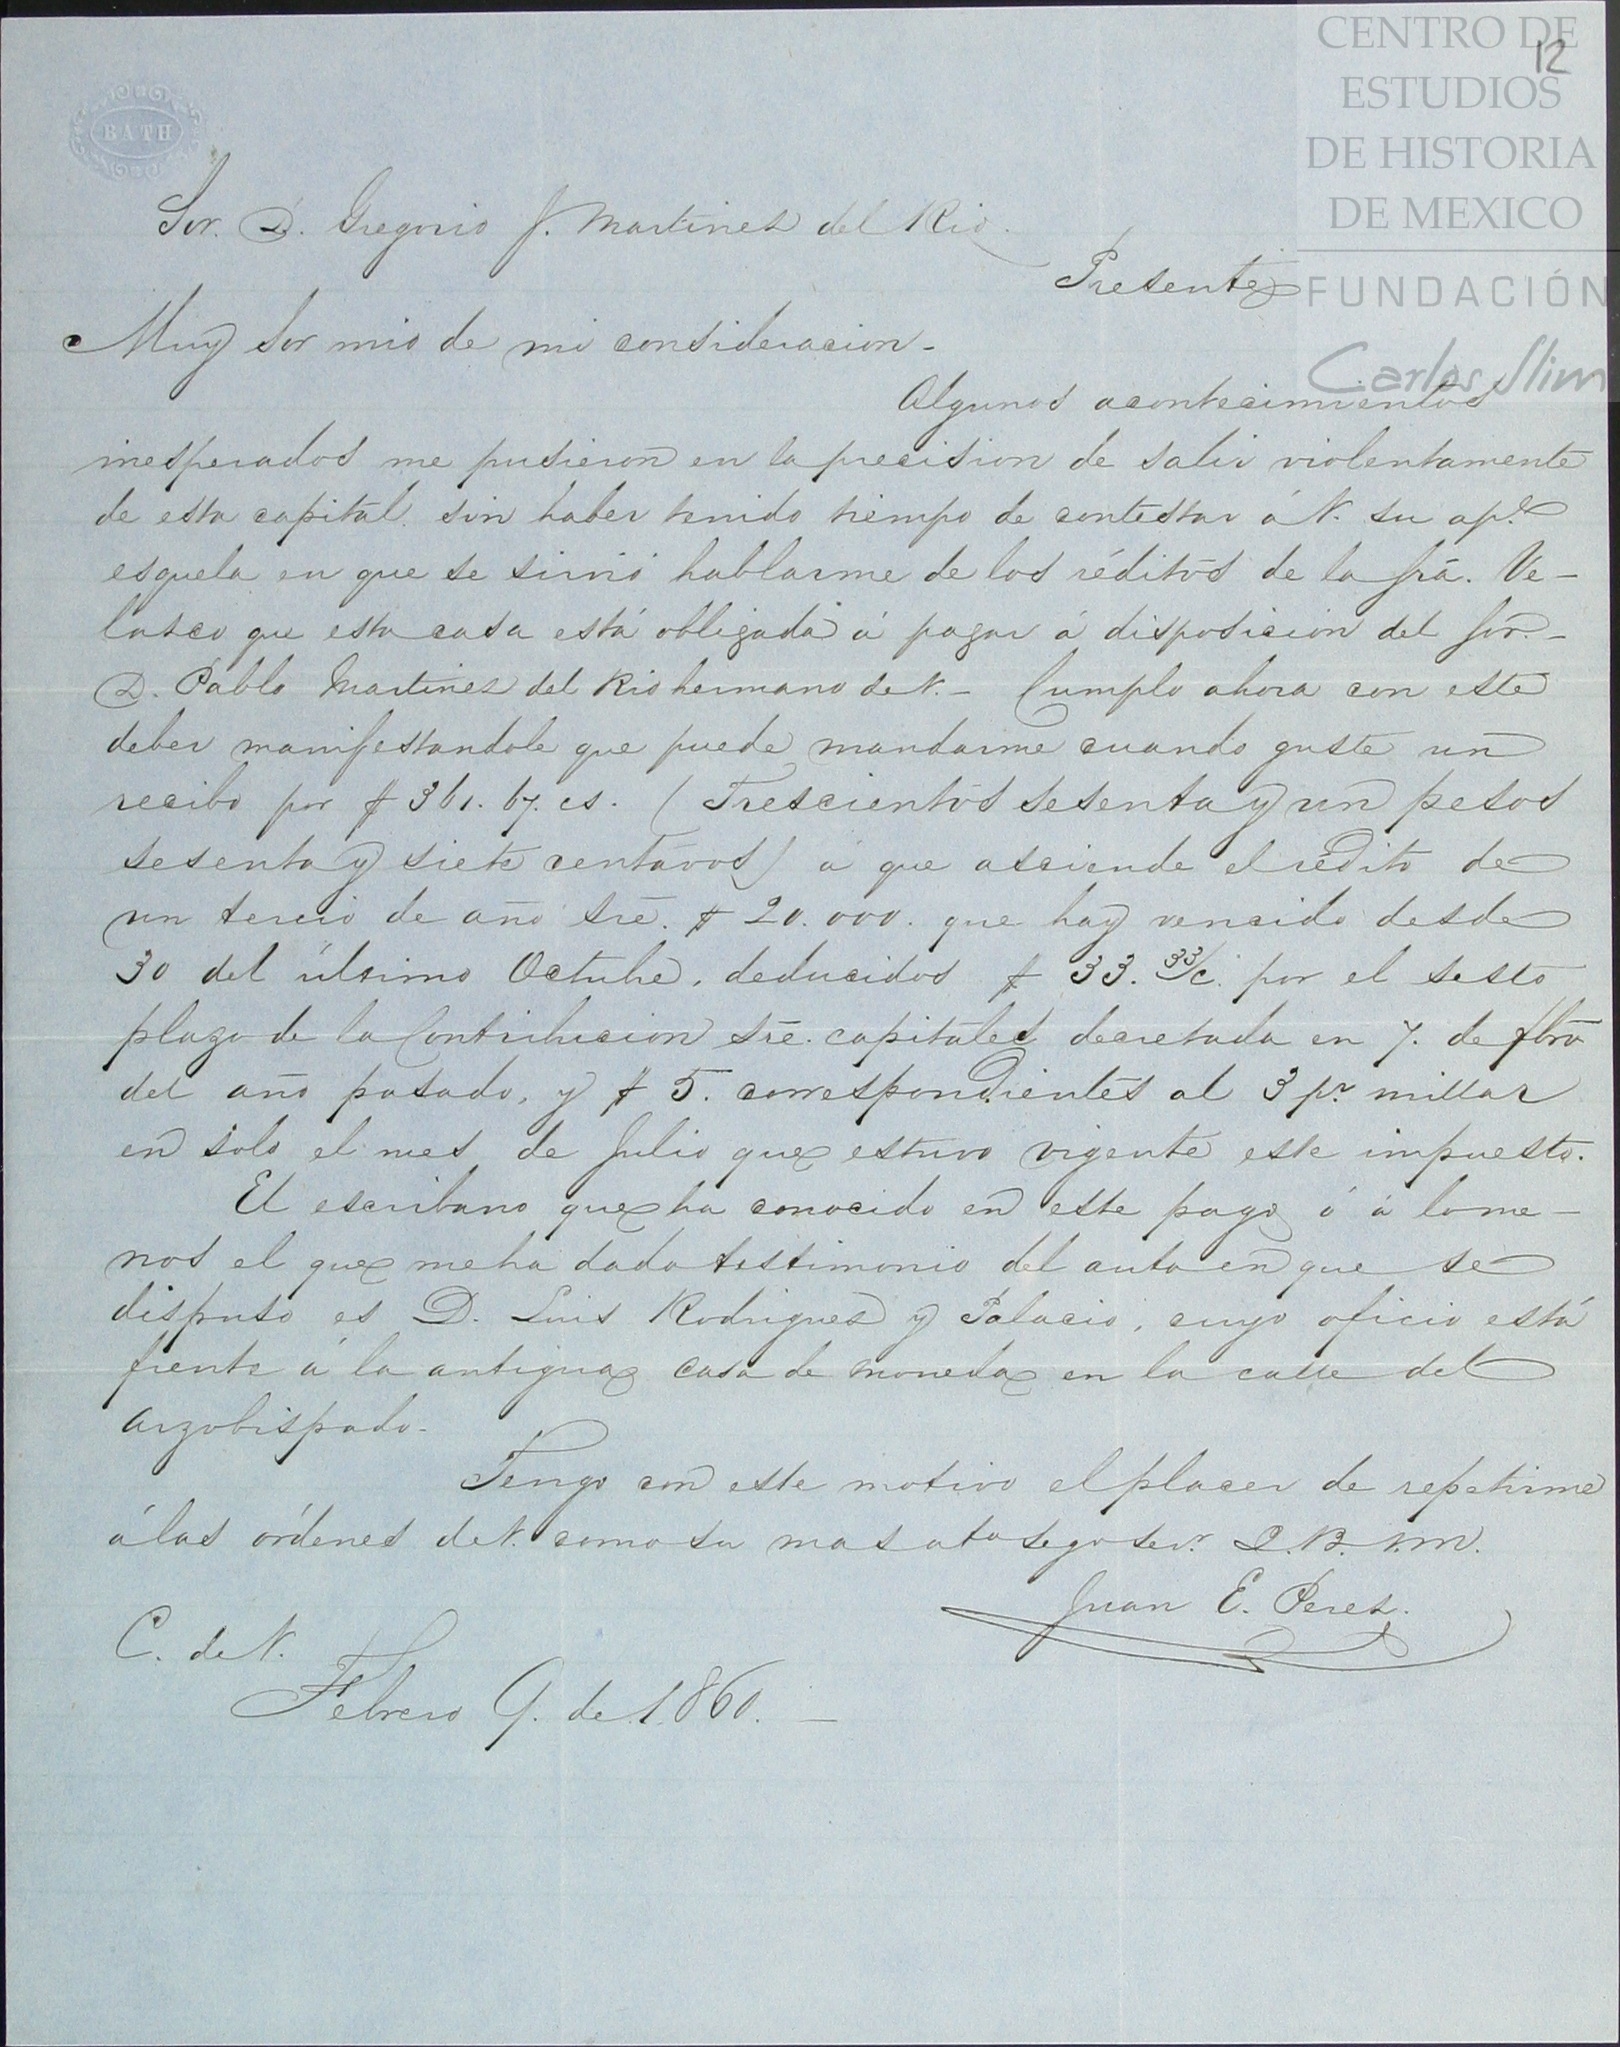 CENTRO DE
ESTUDIOS
DE HISTORIA
DE MEXICO
FUNDACIÓN
Carlos Slim
12
BATH
Sor. D. Gregorio J. Martinez del Rio.
Presente
Muy Sor mio de mi consideracion.
Algunos acontecimientos
inesperados me pusieron en la precision de salir violentamente
de esta capital sin haber tenido tiempo de contestar á V. su ap.e
esquela en que se sirvió hablarme de los réditos de la Srã. Ve-
lasco que esta casa está obligada á pagar á disposicion del Sor.
D. Pablo Martinez del Rio hermano de V. Cumplo ahora con este
deber manifestandole que puede mandarme cuando guste un
recibo por $ 361. 67. cs. (Trescientos sesenta y un pesos
sesenta y siete centavos) á que asciende el rédito de
un tercio de año srẽ. $ 20.000. que hay vencido desde
30 del último Octubre, deducidos $ 33. 33/c. por el sesto
plazo de la Contribucion srẽ. capitales decretada en 7. de fbro
del año pasado, y $ 5. correspondientes al 3 pr. millar
en solo el mes de Julio que estuvo vigente este impuesto.
El escribano que ha conocido en este pago ó á lo me-
nos el que me ha dado testimonio del auto en que se
dispuso es D. Luis Rodriguez y Palacio, cuyo oficio está
frente á la antigua casa de moneda en la calle del
arzobispado.
Tengo con este motivo el placer de repetirme
á las órdenes de V. como su mas ato. sego. ser.r Q.B.S.M.
Juan E. Perez.
C. de V.
Febrero 9. de 1860.